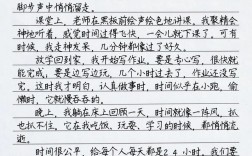 脚步声中悄悄溜走。
课堂上，老师在黑板前绘声绘色地讲课，我聚精会
神地听着，感觉时间过得飞快，一会儿就下课了。可有
时候，我走神发呆，几分钟都像过了好久。
放学回到家，我开始写作业。要是专心写，很快就
能完成，要是边写边玩，几个小时过去了，作业还没写
完。这时我才明白，认真做事，时间就像在跑步，偷
懒时，它就慢吞吞的。
晚上，我躺在床上回顾一天，时间就像一阵风，抓
也抓不住。它在我吃饭、玩耍、学习的时候，都悄悄流
逝。
时间很公平，给每个人每天都是24小时。我们要